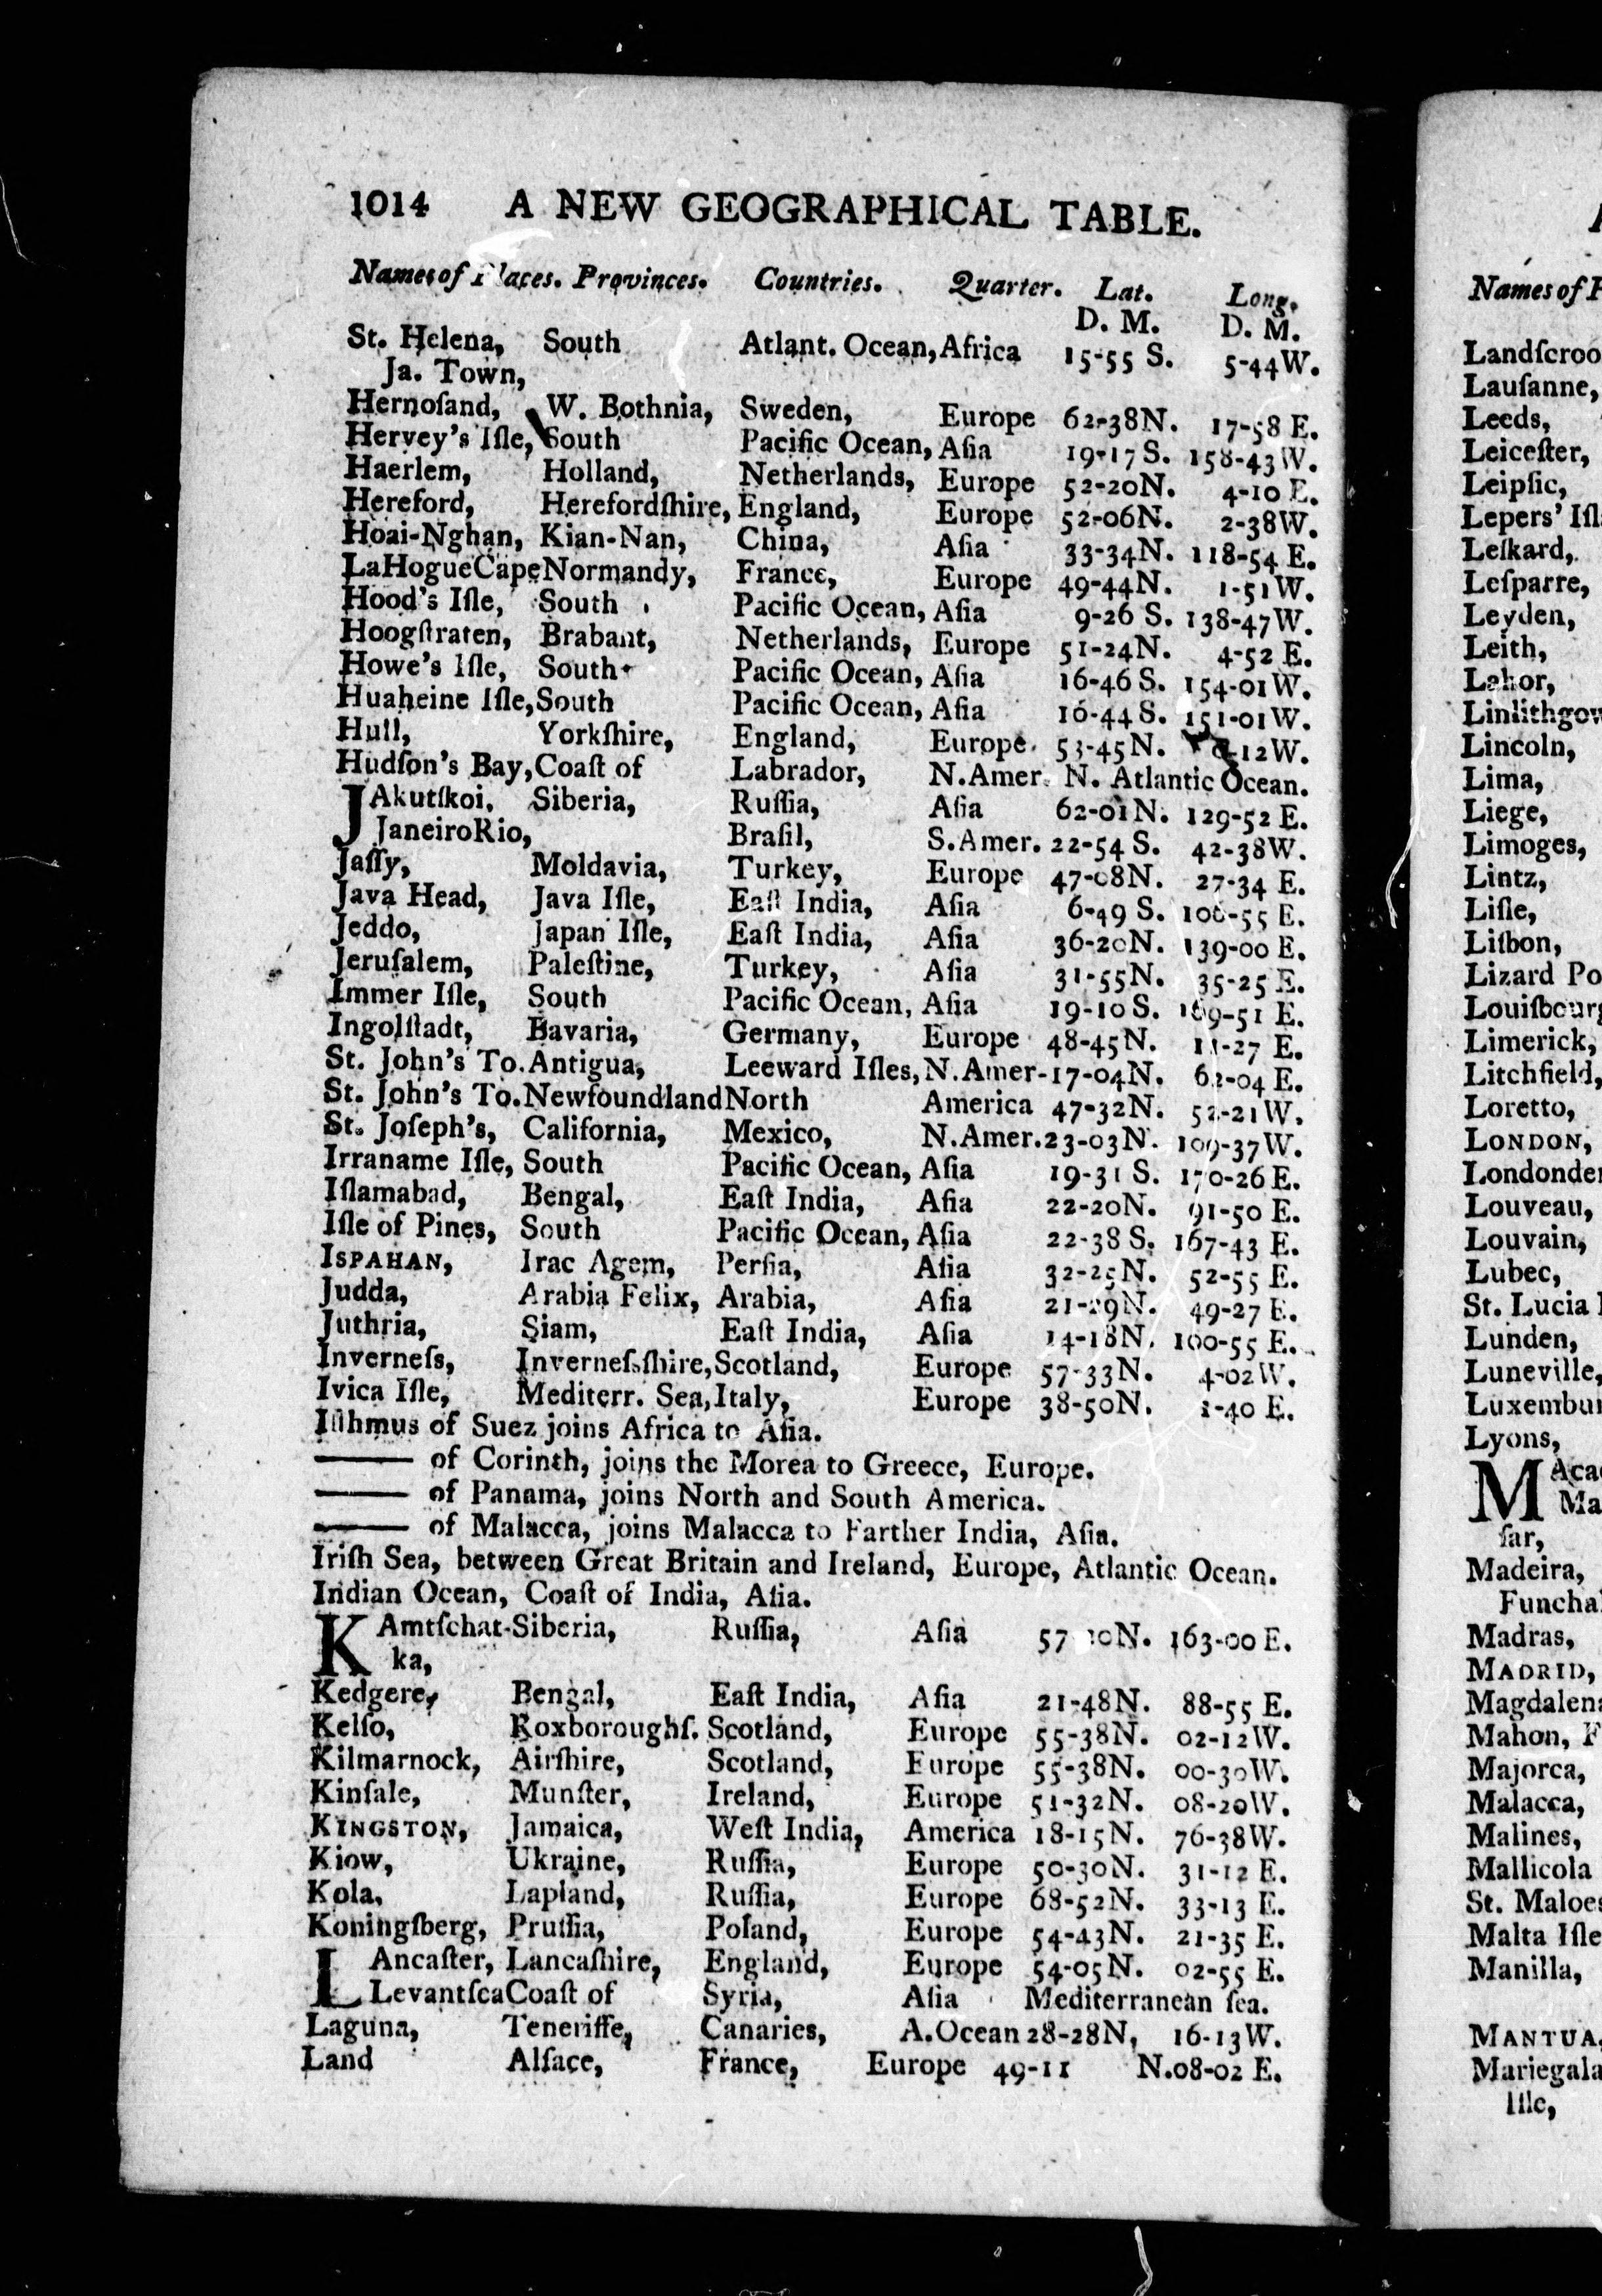 1014 A NEW GEOGRAPHICAL TABLE.
Names of Places. Provinces. Countries. Quarter. Lat. Long.
D. M. D. M.
St. Helena, South Atlant. Ocean, Africa 15-55 S. 5-44W.
Ja. Town,
Hernoſand, W. Bothnia, Sweden, Europe 62-38N. 17-58 E.
Hervey's Iſle, South Pacific Ocean, Aſia 19-17 S. 158-43W.
Haerlem, Holland, Netherlands, Europe 52-20N. 4-10 E.
Hereford, Herefordſhire, England, Europe 52-06N. 2-38W.
Hoai-Nghan, Kian-Nan, China, Aſia 33-34N. 118-54 E.
LaHogueCape Normandy, France, Europe 49-44N. 1-51W.
Hood's Iſle, South Pacific Ocean, Aſia 9-26 S. 138-47W.
Hoogſtraten, Brabant, Netherlands, Europe 51-24N. 4-52 E.
Howe's Iſle, South Pacific Ocean, Aſia 16-46 S. 154-01W.
Huaheine Iſle, South Pacific Ocean, Aſia 16-44 S. 151-01W.
Hull, Yorkſhire, England, Europe 53-45N. 12W.
Hudſon's Bay, Coaſt of Labrador, N.Amer. N. Atlantic Ocean.
JAkutſkoi, Siberia, Ruſſia, Aſia 62-01N. 129-52 E.
JaneiroRio, Braſil, S.Amer. 22-54 S. 42-38W.
Jaſſy, Moldavia, Turkey, Europe 47-08N. 27-34 E.
Java Head, Java Iſle, Eaſt India, Aſia 6-49 S. 106-55 E.
Jeddo, Japan Iſle, Eaſt India, Aſia 36-20N. 139-00 E.
Jeruſalem, Paleſtine, Turkey, Aſia 31-55N. 35-25 E.
Immer Iſle, South Pacific Ocean, Aſia 19-10 S. 169-51 E.
Ingolſtadt, Bavaria, Germany, Europe 48-45N. 11-27 E.
St. John's To. Antigua, Leeward Iſles, N.Amer-17-04N. 62-04 E.
St. John's To. Newfoundland North America 47-32N. 52-21W.
St. Joſeph's, California, Mexico, N.Amer.23-03N. 109-37W.
Irraname Iſle, South Pacific Ocean, Aſia 19-31 S. 170-26 E.
Iſlamabad, Bengal, Eaſt India, Aſia 22-20N. 91-50 E.
Iſle of Pines, South Pacific Ocean, Aſia 22-38 S. 167-43 E.
ISPAHAN, Irac Agem, Perſia, Aſia 32-25N. 52-55 E.
Judda, Arabia Felix, Arabia, Aſia 21-29N. 49-27 E.
Juthria, Siam, Eaſt India, Aſia 14-18N. 100-55 E.
Inverneſs, Inverneſsſhire, Scotland, Europe 57-33N. 4-02W.
Ivica Iſle, Mediterr. Sea, Italy, Europe 38-50N. 1-40 E.
Iſthmus of Suez joins Africa to Aſia.
—— of Corinth, joins the Morea to Greece, Europe.
—— of Panama, joins North and South America.
—— of Malacca, joins Malacca to Farther India, Aſia.
Iriſh Sea, between Great Britain and Ireland, Europe, Atlantic Ocean.
Indian Ocean, Coaſt of India, Aſia.
KAmtſchat- Siberia, Ruſſia, Aſia 57 N. 163-00 E.
ka,
Kedgere, Bengal, Eaſt India, Aſia 21-48N. 88-55 E.
Kelſo, Roxboroughſ. Scotland, Europe 55-38N. 02-12W.
Kilmarnock, Airſhire, Scotland, Europe 55-38N. 00-30W.
Kinſale, Munſter, Ireland, Europe 51-32N. 08-20W.
KINGSTON, Jamaica, Weſt India, America 18-15N. 76-38W.
Kiow, Ukraine, Ruſſia, Europe 50-30N. 31-12 E.
Kola, Lapland, Ruſſia, Europe 68-52N. 33-13 E.
Koningſberg, Pruſſia, Poland, Europe 54-43N. 21-35 E.
LAncaſter, Lancaſhire, England, Europe 54-05N. 02-55 E.
Levantſea Coaſt of Syria, Aſia Mediterranean ſea.
Laguna, Teneriffe, Canaries, A.Ocean 28-28N, 16-13W.
Land Alſace, France, Europe 49-11 N.08-02 E.
Names of
Landſcroo
Lauſanne,
Leeds,
Leiceſter,
Leipſic,
Lepers' Iſl
Leſkard,
Leſparre,
Leyden,
Leith,
Lahor,
Linlithgow
Lincoln,
Lima,
Liege,
Limoges,
Lintz,
Liſle,
Liſbon,
Lizard Po
Louiſbourg
Limerick,
Litchfield,
Loretto,
LONDON,
Londonder
Louveau,
Louvain,
Lubec,
St. Lucia
Lunden,
Luneville,
Luxembur
Lyons,
MAca
Ma
ſar,
Madeira,
Funchal
Madras,
MADRID,
Magdalena
Mahon, F
Majorca,
Malacca,
Malines,
Mallicola
St. Maloes
Malta Iſle
Manilla,
MANTUA,
Mariegala
Iſle,